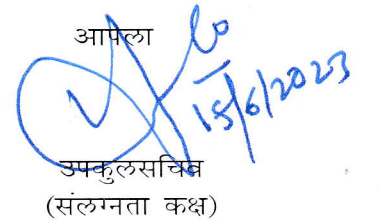 आपला
18/6/2023
उपकुलसचिव
(संलग्नता कक्ष)